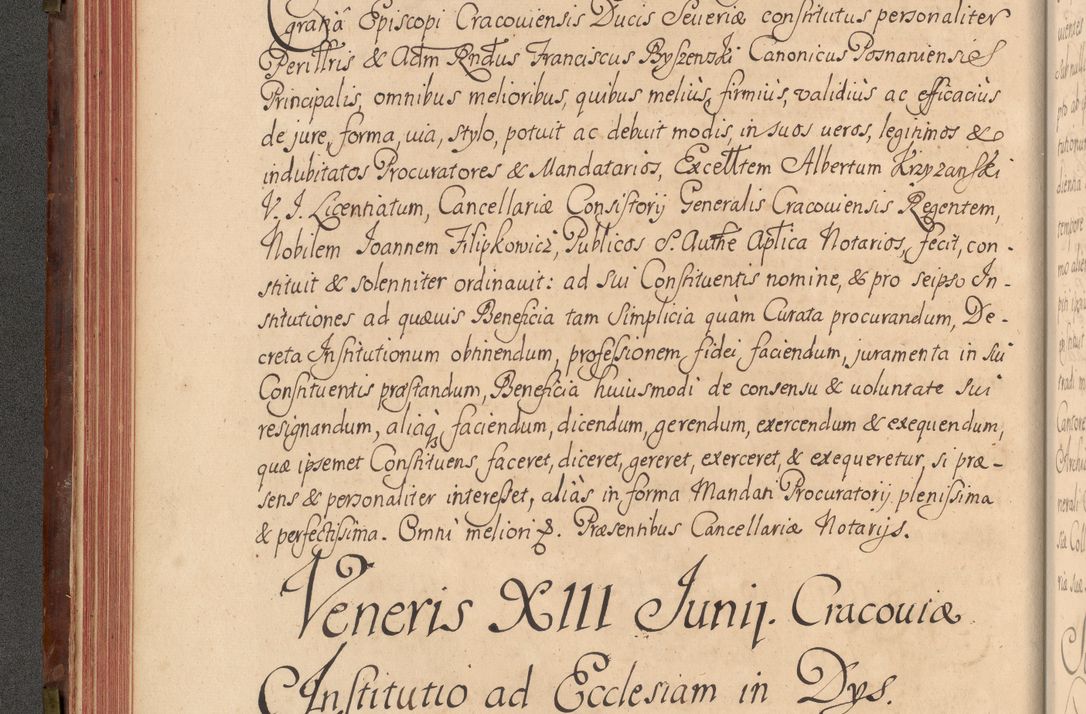 gratiã Episcopi Cracouiensis Ducis Seueriæ constitutus personaliter
Perillris & Adm Rndus Franciscus Byszenski Canonicus Posnaniensis
Principalis, omnibus melioribus, quibus meliùs, firmiùs, validiùs ac efficaciùs
de jure, forma, uia, stylo, potuit ac debuit modis, in suos ueros, legitimos &
indubitatos Procuratores & Mandatarios, Excelltem Albertum Krzyzanski
V. J. Licentiatum, Cancellariæ Consistorij Generalis Cracouiensis Regentem,
Nobilem Joannem Filipkowicz, Publicos S. Authe Aplica Notarios, fecit, con-
stituit & solenniter ordinauit: ad sui Constituentis nomine, & pro seipso In-
stitutiones ad quæuis Beneficia tam Simplicia quàm Curata procurandum, De-
creta Institutionum obtinendum, professionem fidei faciendum, juramenta in sui
Constituentis præstandum, Beneficia huiusmodi de consensu & uoluntate sui
resignandum, aliaq3 faciendum, dicendum, gerendum, exercendum & exequendum,
quæ ipsemet Constituens faceret, diceret, gereret, exerceret, & exequeretur, si præ-
sens & personaliter interesset, aliàs in forma Mandati Procuratorij plenissima
& perfectissima. Omni meliori &. Præsentibus Cancellariæ Notarijs.
Veneris XIII Junij. Cracouiæ
Institutio ad Ecclesiam in Dys.